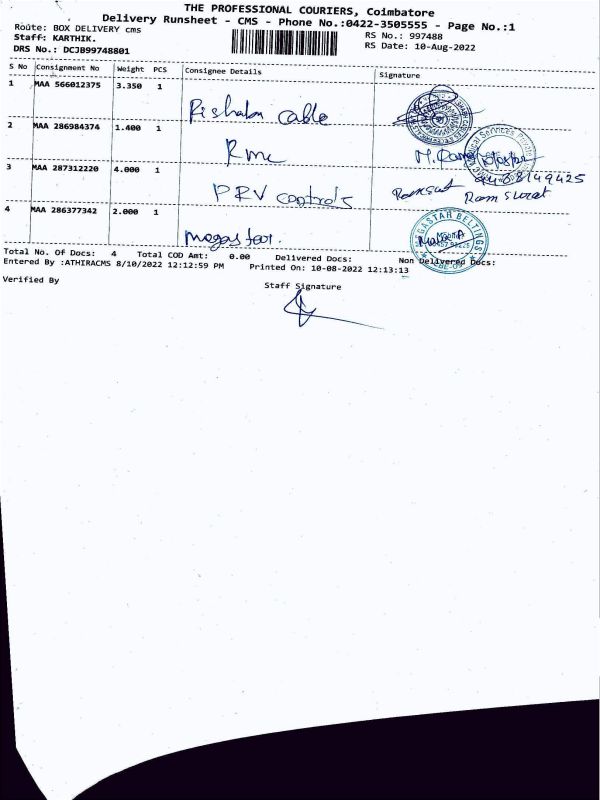 THE PROFESSIONAL COURIERS, Coimbatore
Delivery Runsheet - CMS - Phone No.:0422-3505555 - Page No.:1
Route: BOX DELIVERY cms
RS No.: 997488
Staff: KARTHIK.
RS Date: 10-Aug-2022
DRS No.: DCJB99748801
S No Consignment No Weight PCS Consignee Details Signature
1 MAA 566012375 3.350 1
Rishabh cable
2 MAA 286984374 1.400 1
Rmc
3 MAA 287312220 4.000 1
PRV controls
Ram Surat
4 MAA 286377342 2.000 1
megastar.
MEGASTAR BELTINGS
Total No. Of Docs: 4 Total COD Amt: 0.00 Delivered Docs: Non Delivered Docs:
Entered By :ATHIRACMS 8/10/2022 12:12:59 PM Printed On: 10-08-2022 12:13:13
Verified By
Staff Signature